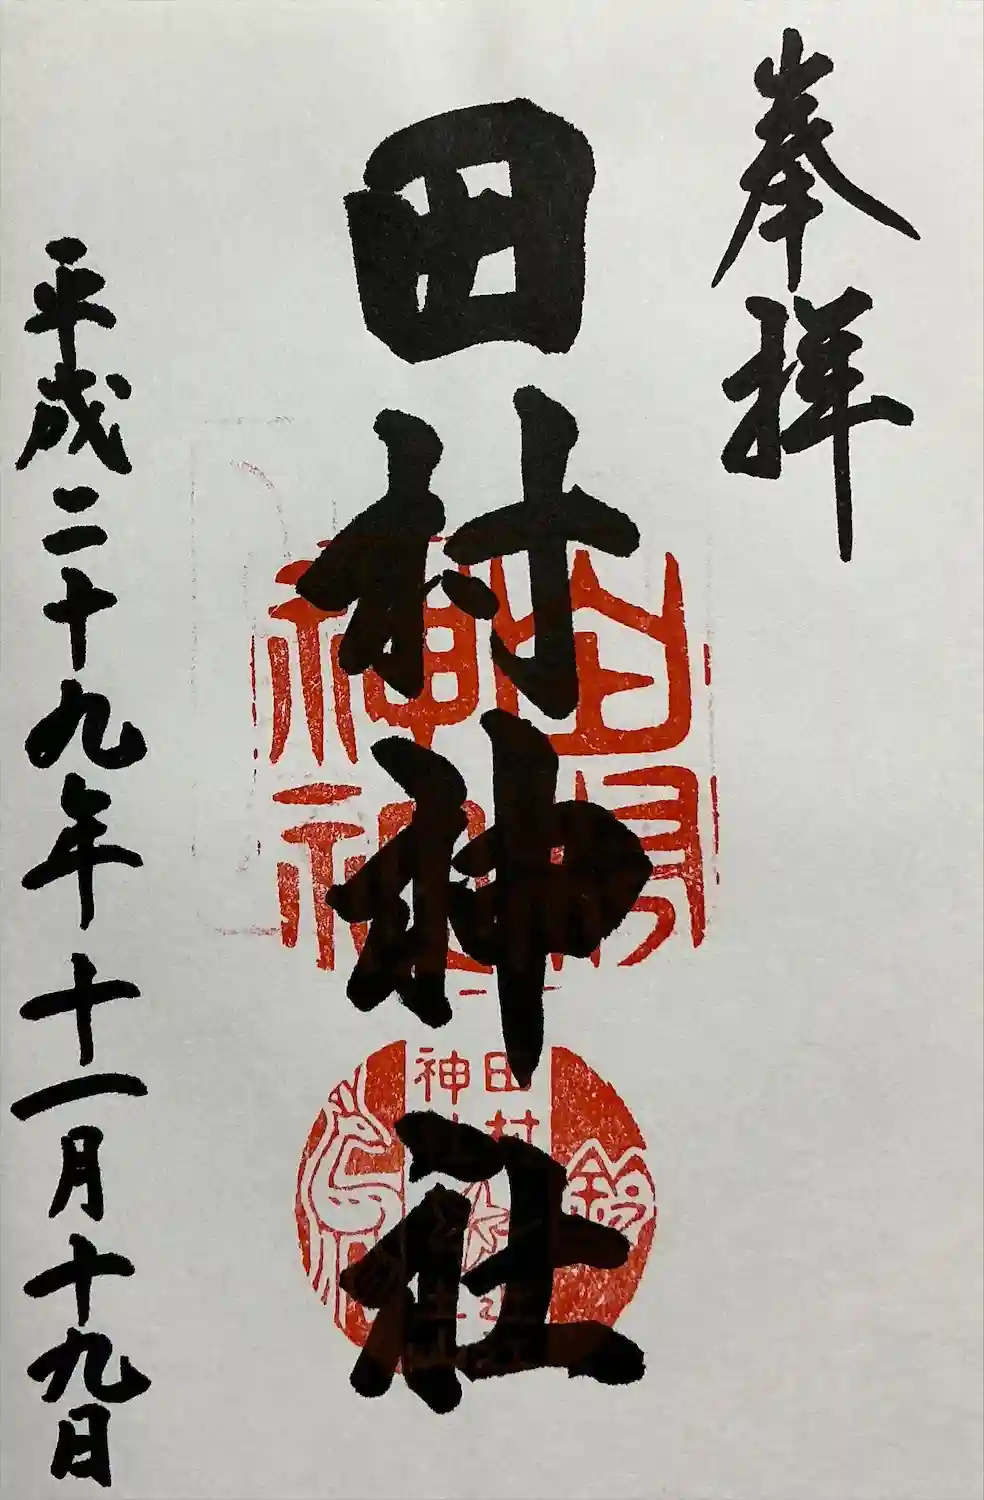 奉拝
田村神社
平成二十九年十一月十九日
田村
神社
田村
神社
鈴